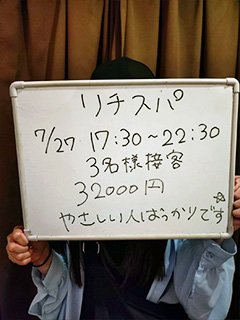 リチスパ
7/27 17:30~22:30
3名様接客
32000円
やさしい人ばっかりです